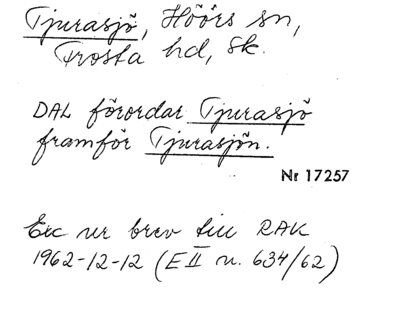 Tjurasjö, Höörs sn,
Frosta hd, Sk.
DAL förordar Tjurasjö
framför Tjurasjön.
Nr 17257
Exc ur brev till RAK
1962-12-12 (E II u. 634/62)